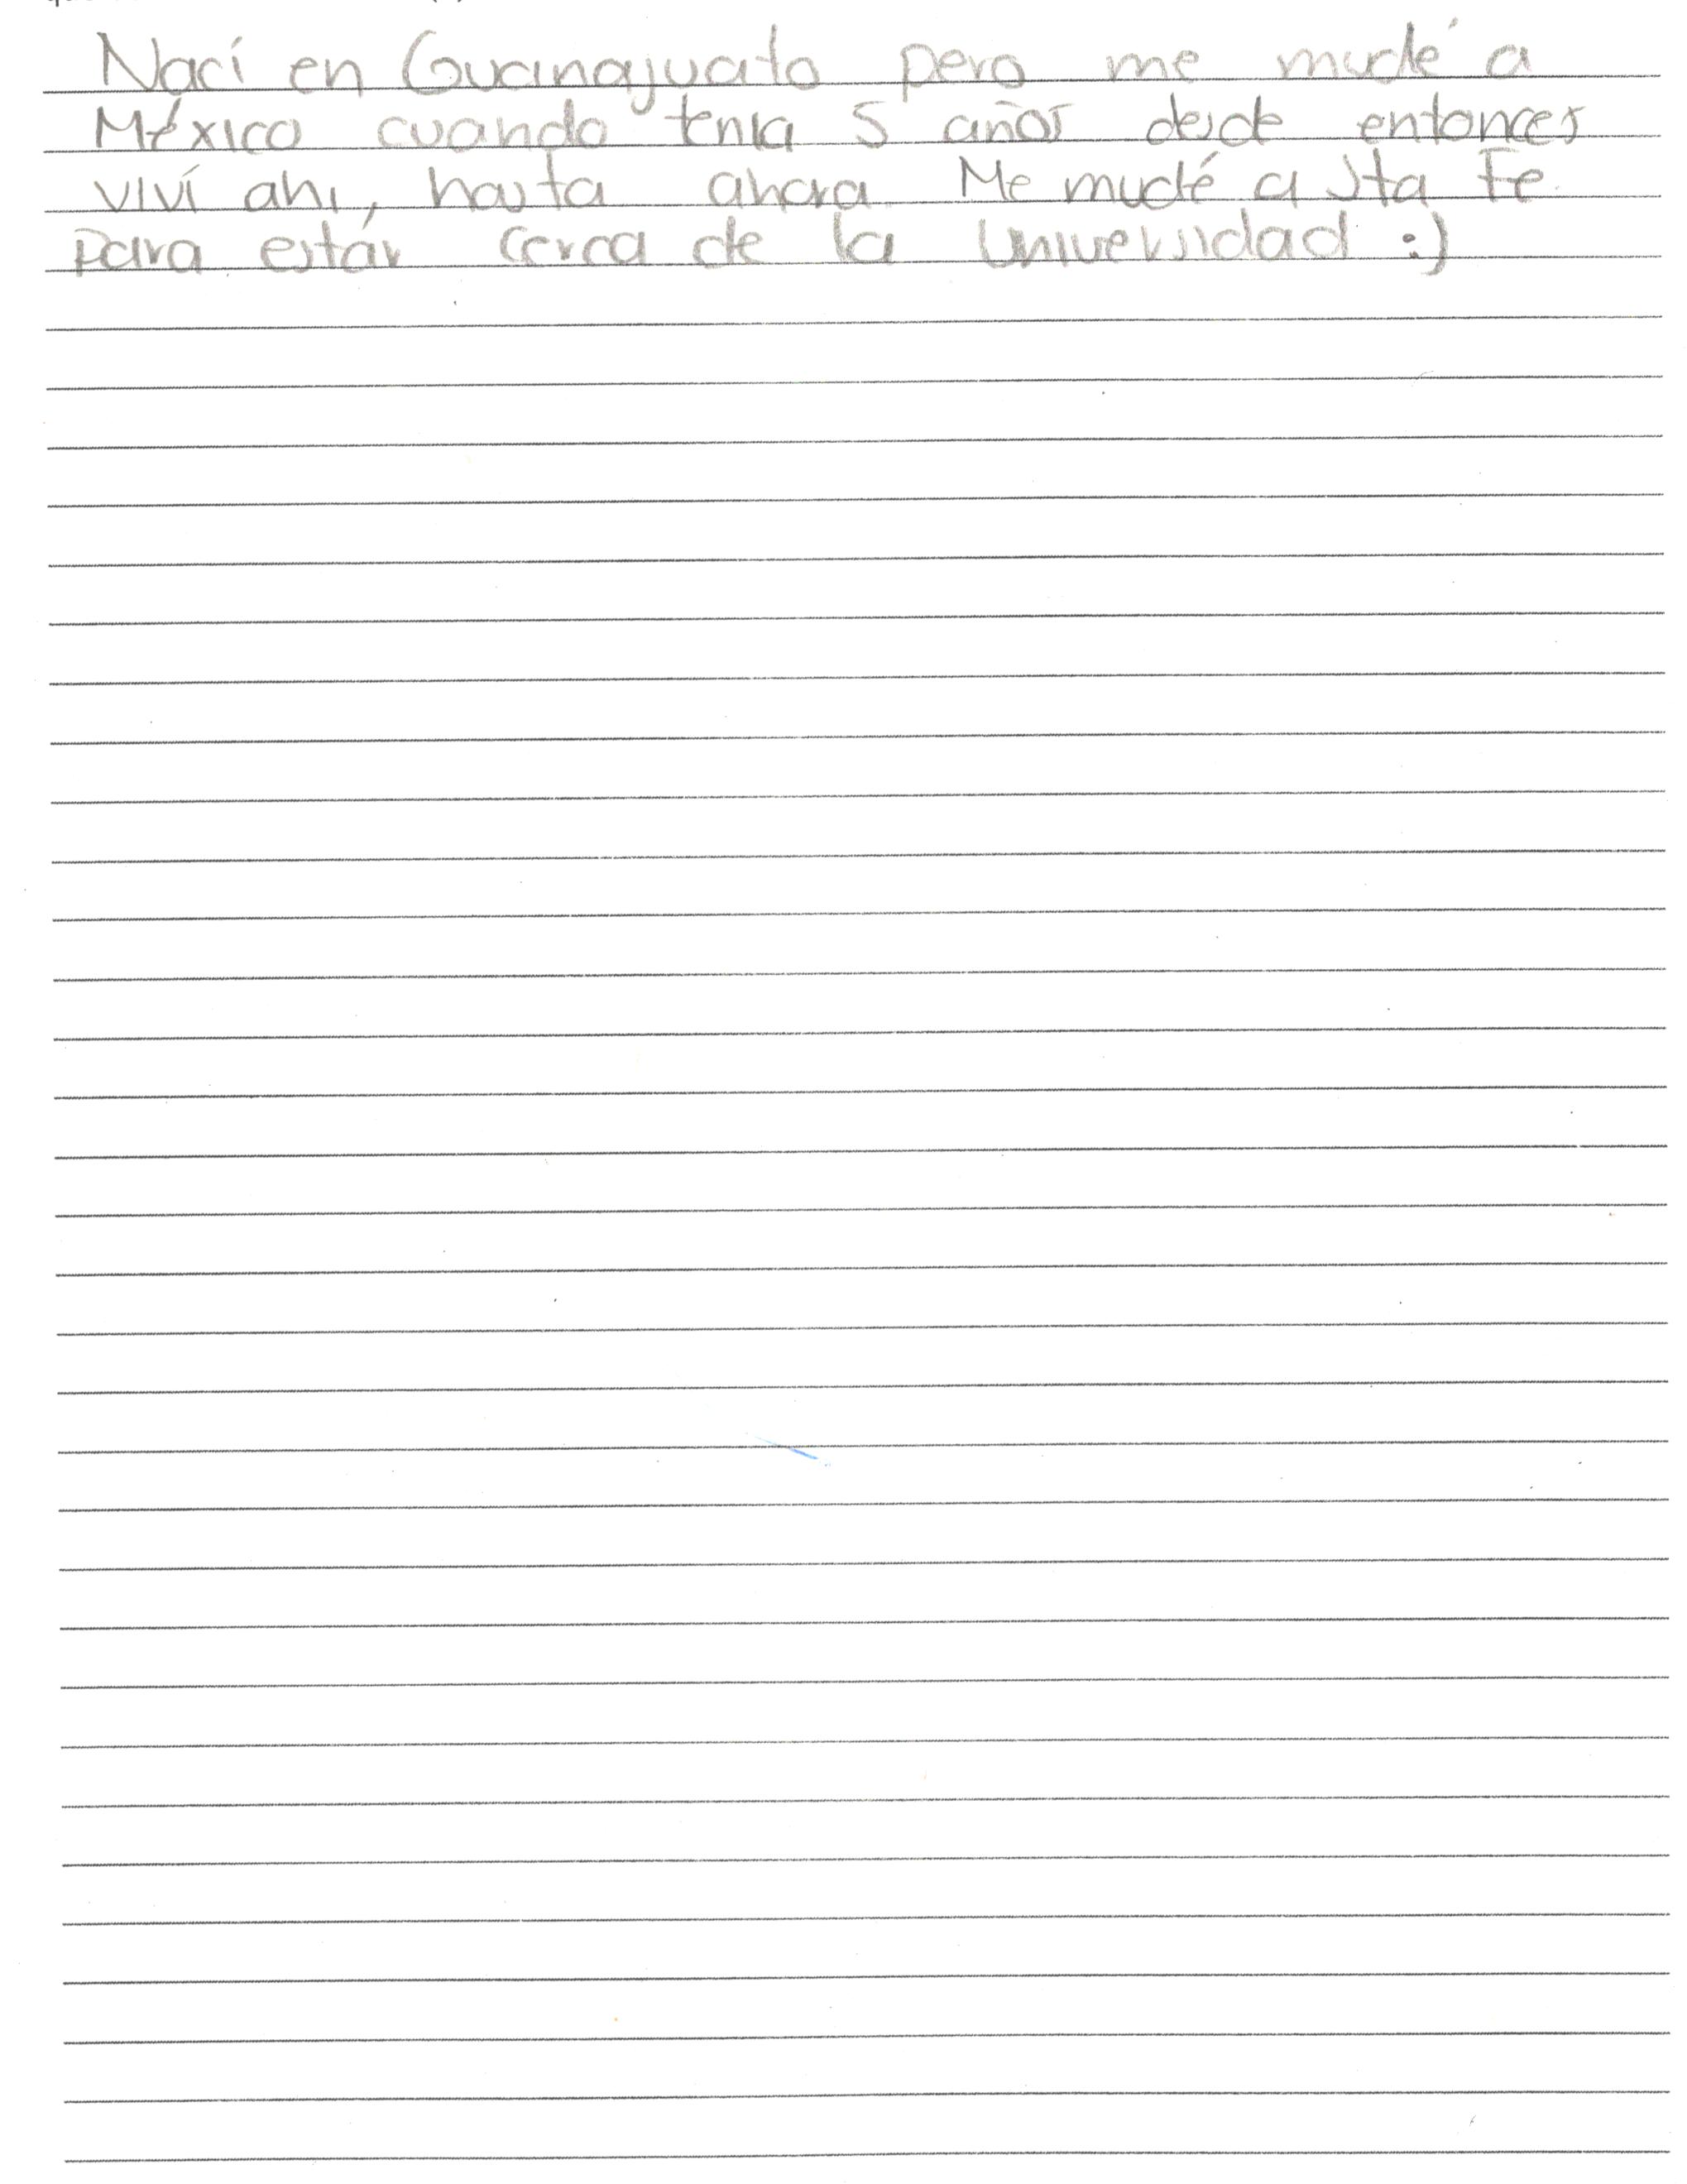 Nací en Guanajuato pero me mudé a
México cuando tenia 5 años desde entonces
viví ahi, hasta ahora. Me mudé a Sta Fe
para estár cerca de la Universidad :)